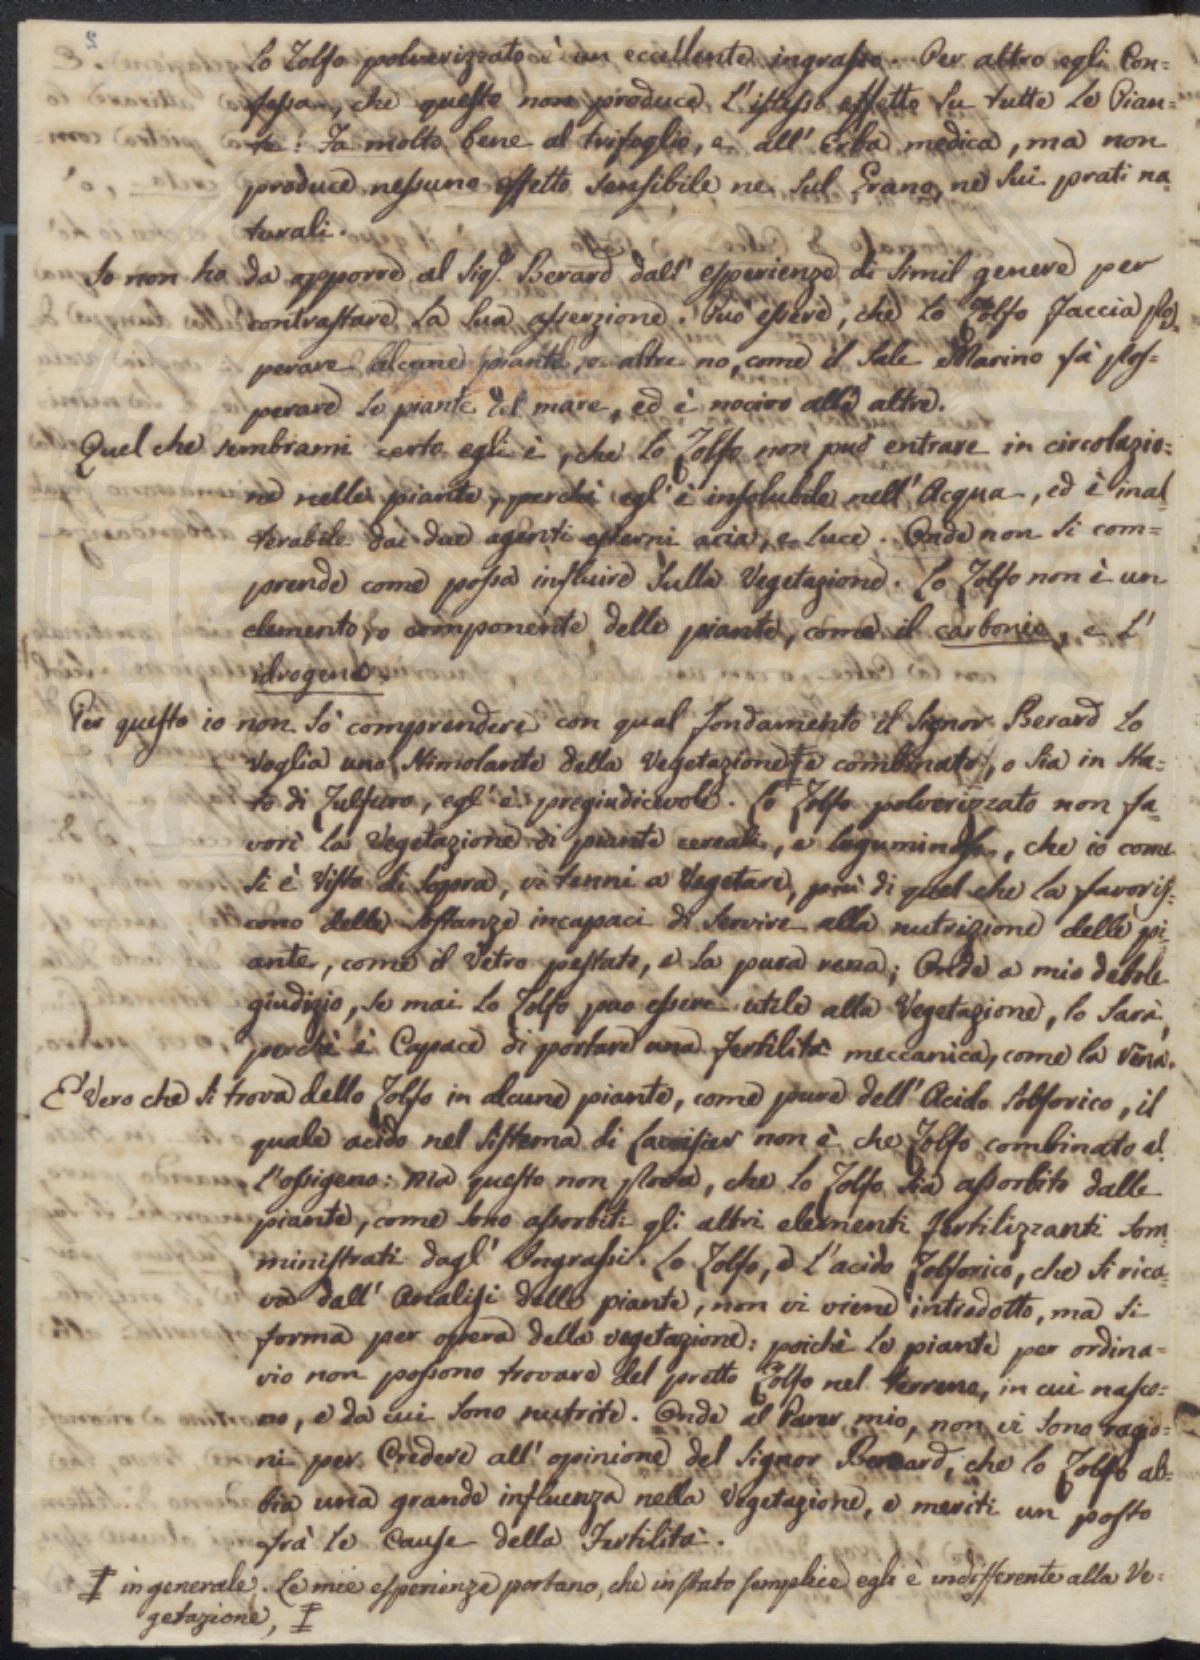 2
lo Zolfo polverizzato è un eccellente ingrasso. Per altro egli Con-
fessa, che questo non produce l'istesso effetto su tutte le Pian-
te: Fa molto bene al trifoglio, e all' Erba medica, ma non
produce nessuno effetto sensibile ne sul Grano, ne sui prati na
turali.
Io non ho da opporre al Sigr. Berard dall' esperienze di simil genere per
contrastare la sua asserzione. Può essere, che lo Zolfo faccia pros-
perare alcune piante, e altre no, come il Sale Marino fà pros-
perare le piante del mare, ed è nocivo alle altre.
Quel che sembrami certo egli è, che lo Zolfo non può entrare in circolazio-
ne nelle piante, perchè egl' è insolubile nell' Acqua, ed è inal
terabile dai due agenti esterni aria, e luce. Onde non si com-
prende come possa influire sulla Vegetazione. Lo Zolfo non è un
elemento, o componente delle piante, come il carbonio, e l'
idrogeno.
Per questo io non sò comprendere con qual fondamento il Signor Berard lo
voglia uno stimolante della Vegetazione ‡ e combinato, o sia in sta-
to di Zulfuro, egl' è pregiudicevole. Lo Zolfo polverizzato non fa-
vorì la Vegetazione di piante cereali, e leguminose, che io come
si è Visto di sopra, vi tenni a Vegetare, più di quel che la favoris-
cono delle sostanze incapaci di servire alla nutrizione delle pi-
ante, come il Vetro pestato, e la pura rena; Onde a mio debole
giudizio, se mai lo Zolfo puo essere utile alla Vegetazione, lo sarà,
perchè è Capace di portare una fertilità meccanica, come la rena.
E' Vero che si trova dello Zolfo in alcune piante, come pure dell' Acido Solforico, il
quale acido nel Sistema di Lavoisier non è che Zolfo combinato al
l'ossigeno: Ma questo non prova, che lo Zolfo sia assorbito dalle
piante, come sono assorbiti gli altri elementi fertilizzanti som
ministrati dagl' Ingrassi. Lo Zolfo, e l'acido Zolforico, che si rica-
va dall' Analisi delle piante, non vi viene introdotto, ma si
forma per opera della vegetazione: poichè le piante per ordina-
rio non possono trovare del pretto Zolfo nel terreno, in cui nasco-
no, e da cui sono nutrite. Onde al Parer mio, non vi sono ragio-
ni per Credere all' opinione del Signor Berard, che lo Zolfo ab-
bia una grande influenza nella Vegetazione, e meriti un posto
frà le Cause della Fertilità.
‡ in generale. Le mie esperienze portano, che in stato semplice egli è indifferente alla Ve-
getazione, ‡